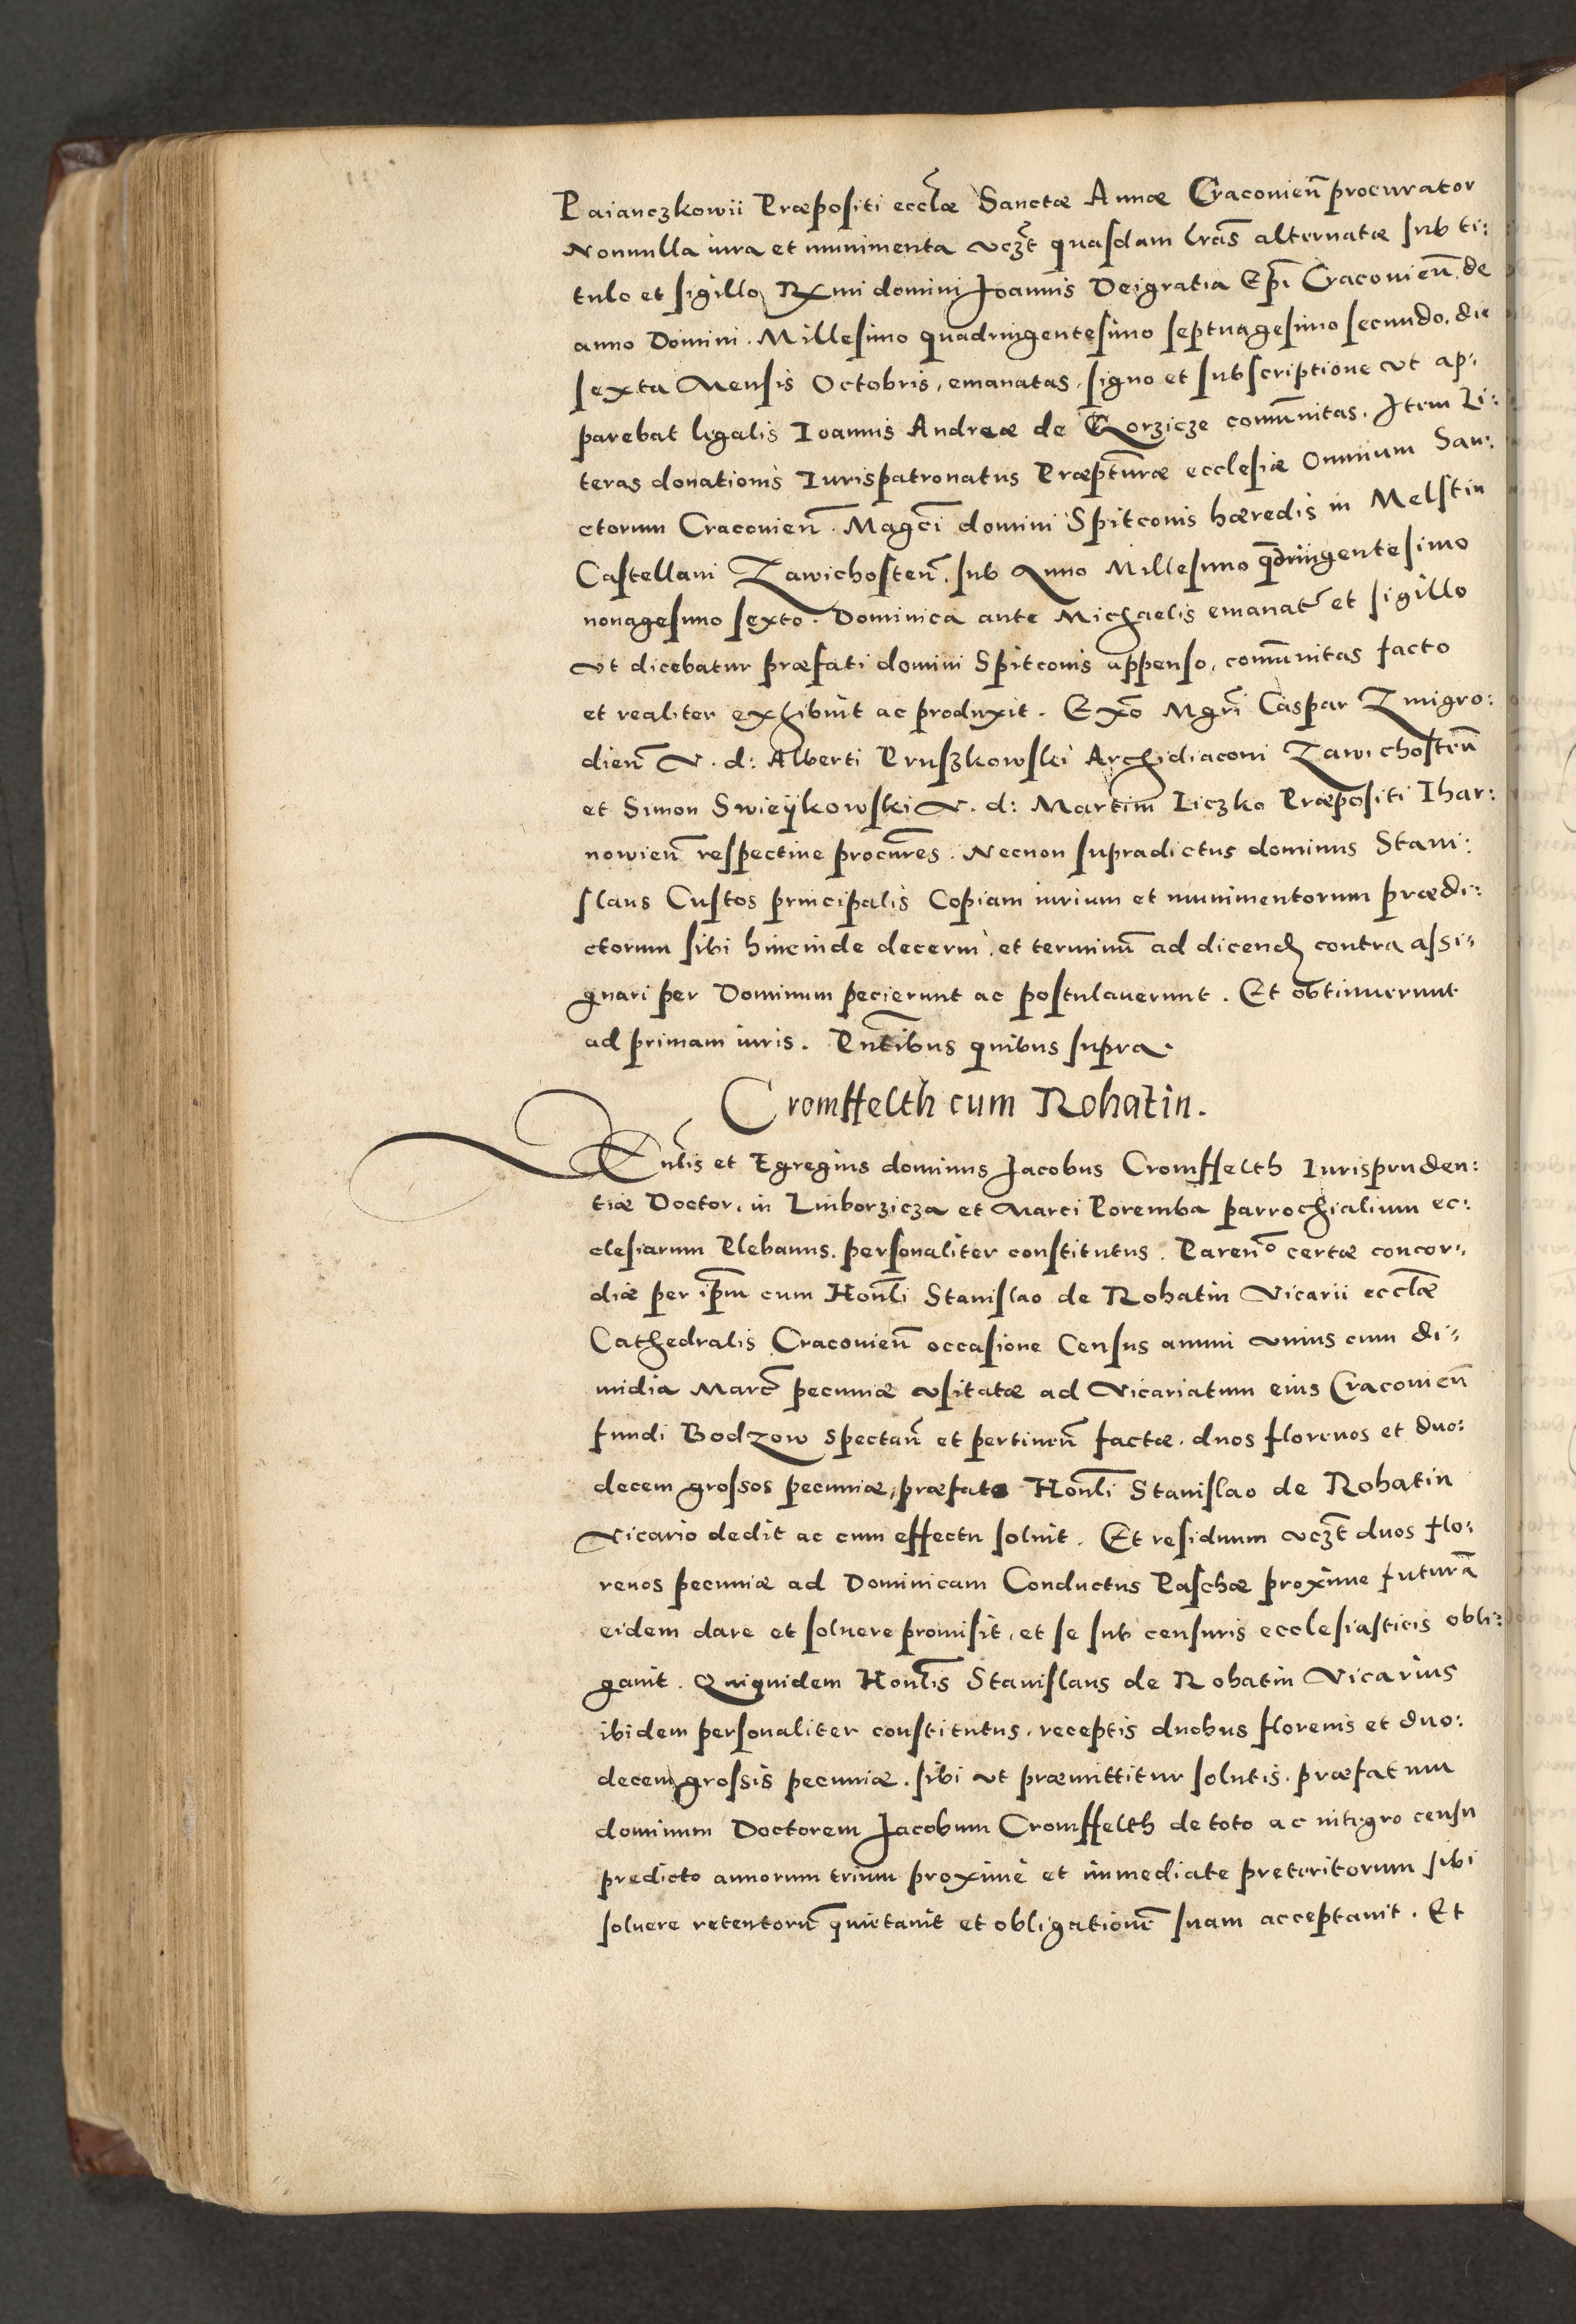 Paianczkowii Præpositi eccl̃æ Sanctæ Annæ Craconieñ procurator
Nonnulla iura et munimenta vcz̃t quasdam lr̃as alternatæ sub ti:
tulo et sigillo Rx̃mi domini Joannis Deigratia Ep̃i Craconieñ. de
anno Domini. Millesimo quadringentesimo septuagesimo secundo. die
sexta Mensis Octobris, emanatas, signo et subscriptione vt ap:
parebat legalis Ioannis Andreæ de Gorzicze comũnitas. Item Li:
teras donationis Iurispatronatus Præpt̃uræ ecclesiæ Omnium San:
ctorum Cracouieñ. Magc̃i domini Spitconis hæredis in Melstin
Castellani Zawichosteñ, sub Anno Millesimo qũdringentesimo
nonagesimo sexto. Dominica ante Michaelis emanat̃ et sigillo
vt dicebatur præfati domini Spitconis appenso, comũnitas facto
et realiter exhibuit ac produxit. Ex̃o Mgr̃i Caspar Zmigro:
dieñ V. d: Alberti Pruszkowski Archidiaconi Zawichosteñ
et Simon Swieÿkowski V. d: Martini Liczko Præpositi Thar:
nowieñ respectiue procur̃es. Necnon supradictus dominus Stani:
slaus Custos principalis Copiam iurium et munimentorum prædi:
ctorum sibi hincinde decerni, et terminũ ad dicend contra assi:
gnari per Dominum pecierunt ac postulauerunt. Et obtinuerunt
ad primam iuris. Pñtibus quibus supra.
Cromffelth cum Rohatin.
Vnl̃is et Egregius dominus Jacobus Cromffelth Iurispruden:
tiæ Doctor, in Luborzicza et Marci Poremba parrochialium ec:
clesiarum Plebanus. personaliter constitutus. Pareñº certæ concor:
diæ per ip̃m cum Honl̃i Stanislao de Rohatin Vicarii eccl̃æ
Cathedralis Cracouieñ occasione Census annui vnius cum di:
midia Marc̃ pecuniæ vsitatæ ad Vicariatum eius Cracouieñ
fundi Bodzow spectañ et pertineñ factæ. duos florenos et duo:
decem grossos pecuniæ, præfato Honl̃i Stanislao de Rohatin
Vicario dedit ac cum effectu soluit. Et residuum vcz̃t duos flo:
renos pecuniæ ad Dominicam Conductus Paschæ proxime futurã
eidem dare et soluere promisit, et se sub censuris ecclesiasticis obli:
gauit. Quiquidem Honl̃is Stanislaus de Rohatin Vicarius
ibidem personaliter constitutus, receptis duobus florenis et duo:
decem grossis pecuniæ, sibi vt præmittitur solutis. præfatum
dominum Doctorem Jacobum Cromffelth de toto ac integro censu
predicto annorum trium proxime et immediate preteritorum sibi
soluere retentorũ quietauit et obligationẽ suam acceptauit. Et